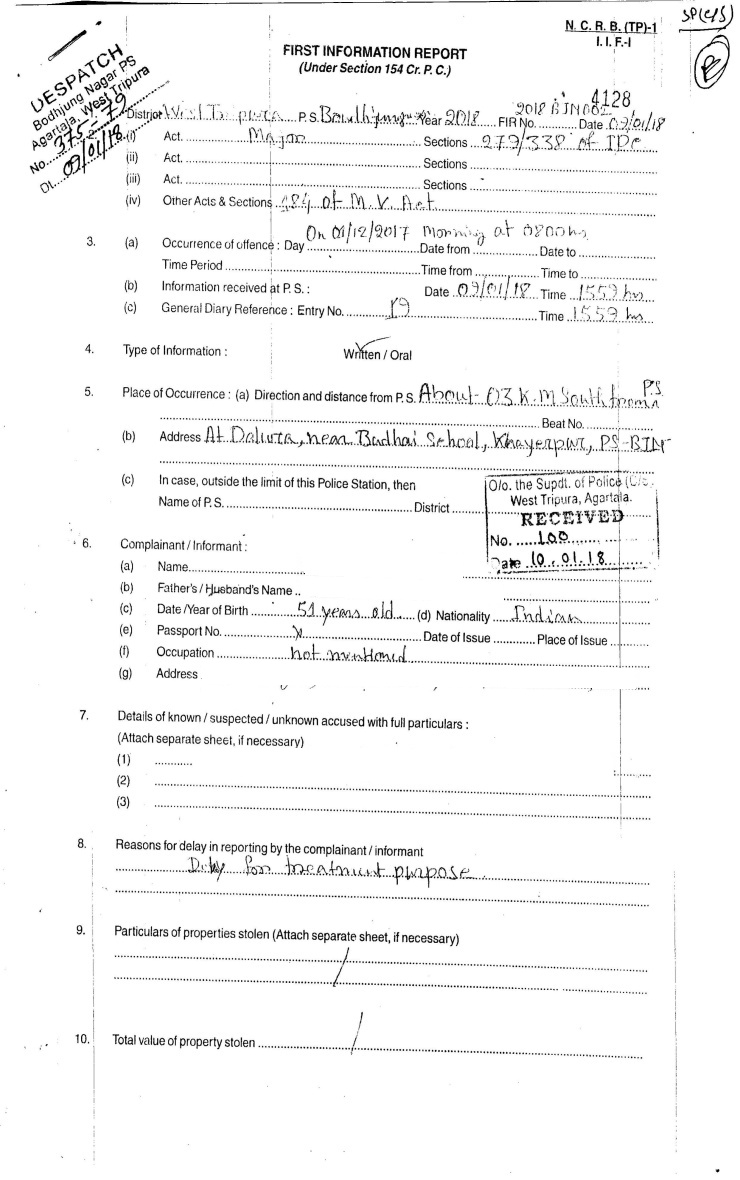 SP(C/S)
N. C. R. B. (TP)-1
I. I. F.-I
FIRST INFORMATION REPORT
(Under Section 154 Cr. P. C.)
DESPATCH
Bodhjung Nagar PS
Agartala, West Tripura
No. 375-79
Dt. 09/01/18
4128
District West Tripura P.S. Year 2018 FIR No. 2018 BJN002 Date 09/01/18
(i) Act. Major Sections 279/338 of IPC
(ii) Act. Sections
(iii) Act. Sections
(iv) Other Acts & Sections 184 of M.V. Act
On 01/12/2017 Morning at 0800 hs
3. (a) Occurrence of offence : Day Date from Date to
Time Period Time from Time to
(b) Information received at P. S. : Date 09/01/18 Time 1559 hrs
(c) General Diary Reference : Entry No. 19 Time 1559 hrs
4. Type of Information : Written / Oral
5. Place of Occurrence : (a) Direction and distance from P. S. About 03 K.M South from P.S
Beat No.
(b) Address At Dalura, near Budhai School, Khayerpur, PS-BJN
(c) In case, outside the limit of this Police Station, then
Name of P. S. District
O/o. the Supdt. of Police
West Tripura, Agartala.
RECEIVED
No. 100
Date 10.01.18
6. Complainant / Informant :
(a) Name
(b) Father's / Husband's Name
(c) Date /Year of Birth 51 years old (d) Nationality Indian
(e) Passport No. x Date of Issue Place of Issue
(f) Occupation not mentioned
(g) Address
7. Details of known / suspected / unknown accused with full particulars :
(Attach separate sheet, if necessary)
(1)
(2)
(3)
8. Reasons for delay in reporting by the complainant / informant
Delay for treatment purpose.
9. Particulars of properties stolen (Attach separate sheet, if necessary)
10. Total value of property stolen